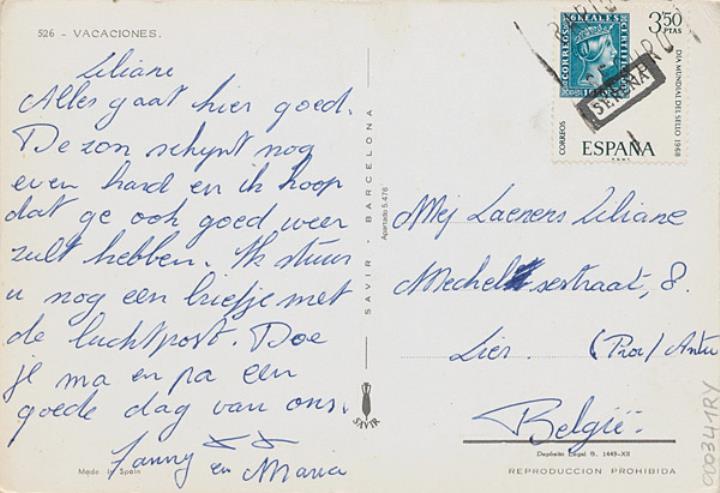 526 - VACACIONES.
Liliane
Alles gaat hier goed.
De zon schynt nog
even hard en ik hoop
dat ge ook goed weer
zult hebben. Ik stuur
u nog een briefje met
de luchtpost. Doe
je ma en pa een
goede dag van ons.
Fanny en Maria
Made in Spain
SAVIR - BARCELONA
Apartado 5.476
SAVIR
CORREOS
REALES
CERTIF
3'50
PTAS
DIA MUNDIAL DEL SELLO 1968
CORREOS
ESPAÑA
SERENA
Mej Laenens Liliane
Mechelsestraat, 8.
Lier. (Prov/ Antw
België.
Depósito Legal B. 1449-XII
REPRODUCCION PROHIBIDA
000341RY